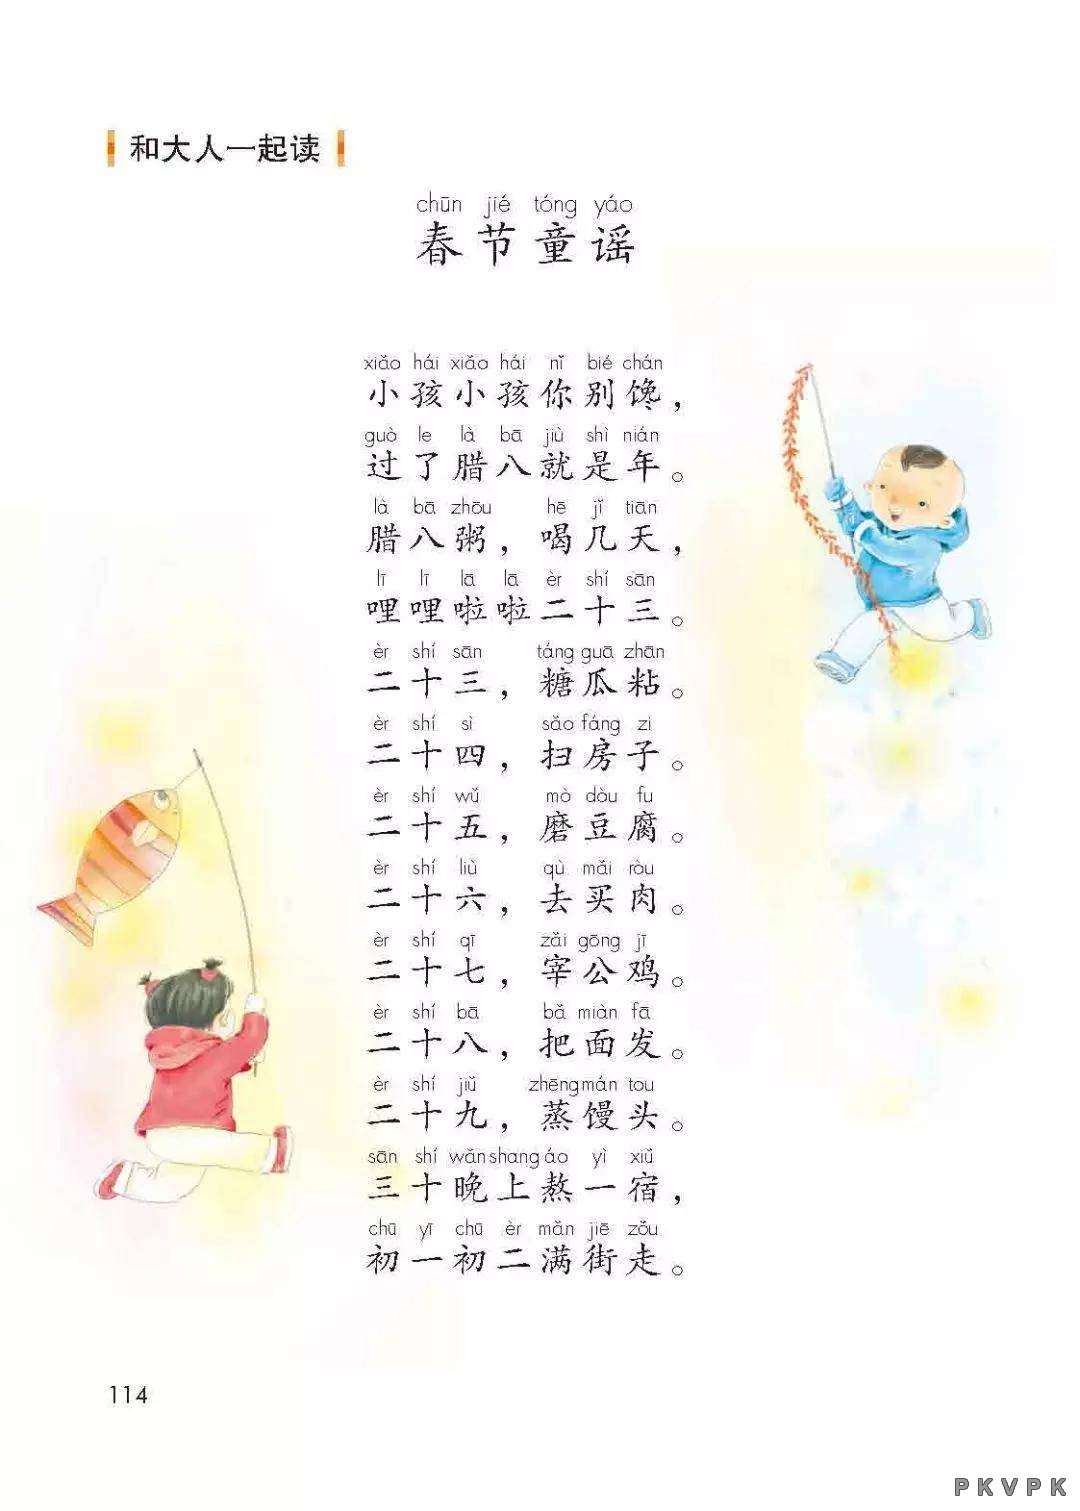 和大人一起读
chūn jié tóng yáo
春节童谣
xiǎo hái xiǎo hái nǐ bié chán
小孩小孩你别馋，
guò le là bā jiù shì nián
过了腊八就是年。
là bā zhōu hē jǐ tiān
腊八粥，喝几天，
lī lī lā lā èr shí sān
哩哩啦啦二十三。
èr shí sān táng guā zhān
二十三，糖瓜粘。
èr shí sì sǎo fáng zi
二十四，扫房子。
èr shí wǔ mò dòu fu
二十五，磨豆腐。
èr shí liù qù mǎi ròu
二十六，去买肉。
èr shí qī zǎi gōng jī
二十七，宰公鸡。
èr shí bā bǎ miàn fā
二十八，把面发。
èr shí jiǔ zhēng mán tou
二十九，蒸馒头。
sān shí wǎn shang áo yì xiǔ
三十晚上熬一宿，
chū yī chū èr mǎn jiē zǒu
初一初二满街走。
114
PKVPK